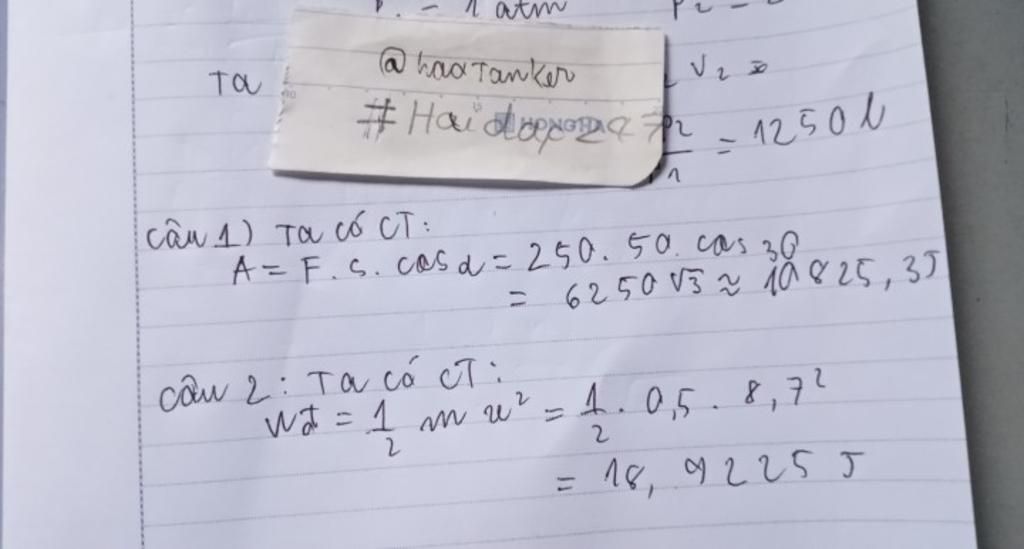 P₁ = 1 atm P₂ =
Ta
@haotanker
#Hai
V₂ =
P₂/P₁ = 1250 l
Câu 1) Ta có CT:
A = F. s. cos α = 250. 50. cos 30
= 6250√3 ≈ 10825,3J
Câu 2: Ta có CT:
Wđ = 1/2 m v² = 1/2 . 0,5 . 8,7²
= 18,9225 J